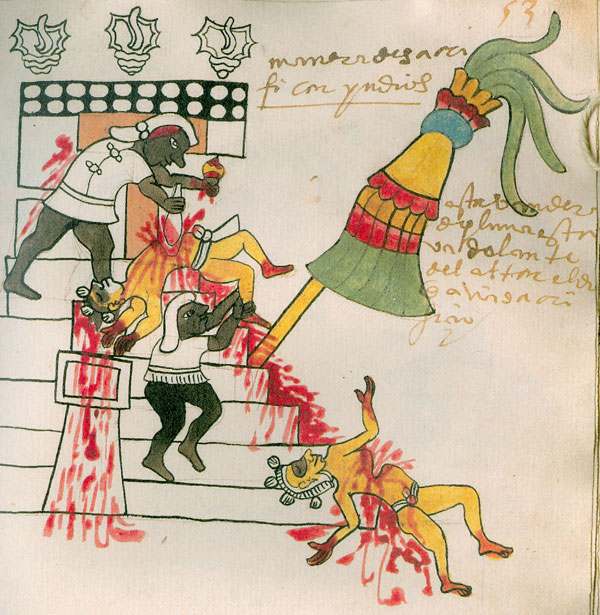 53
manera de sacri
ficar yndios
esta vandera
de plumas esta
va delante
del altar el di
a avia sacri
ficio